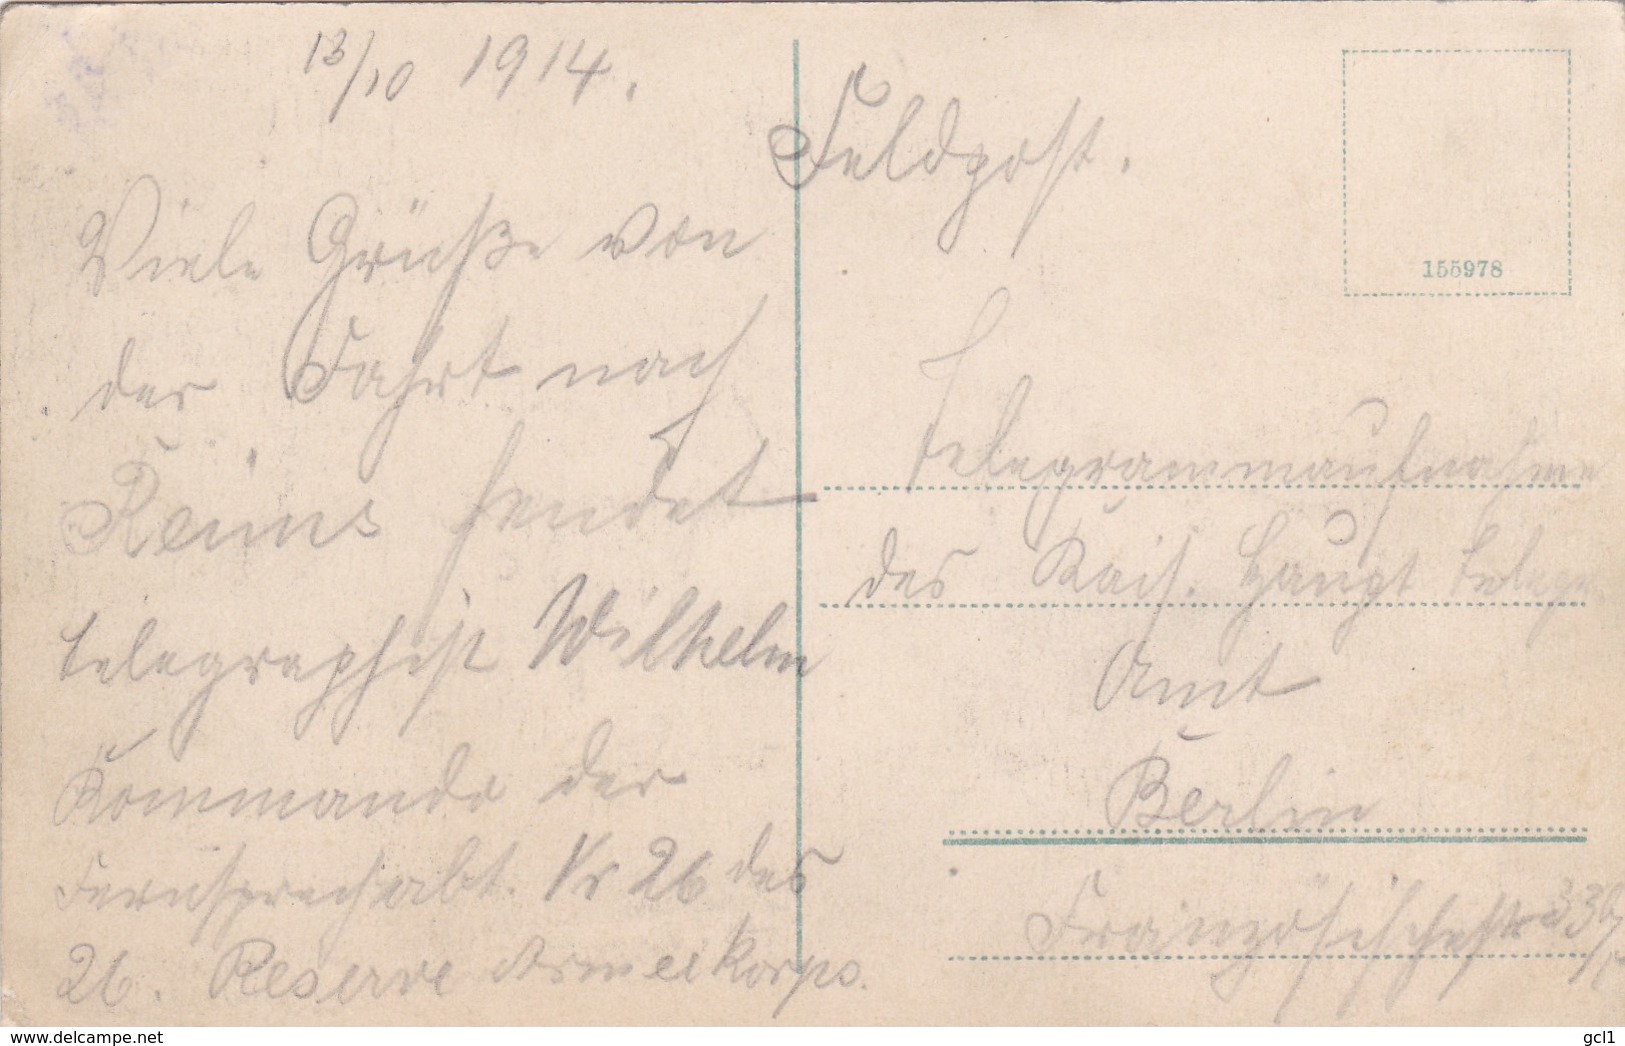 13/10 1914.
Viele Grüße von
der Fahrt nach
Reims sendet
Telegraphist Wilhelm
Kommando der
Fernsprechabt. Nr 26 des
26. Reserve Armeekorps.
Feldpost.
155978
Telegrammaufnahme
des Kais. Haupt Telegr.
Amt
Berlin
Französischestr
delcampe.net
gcl1